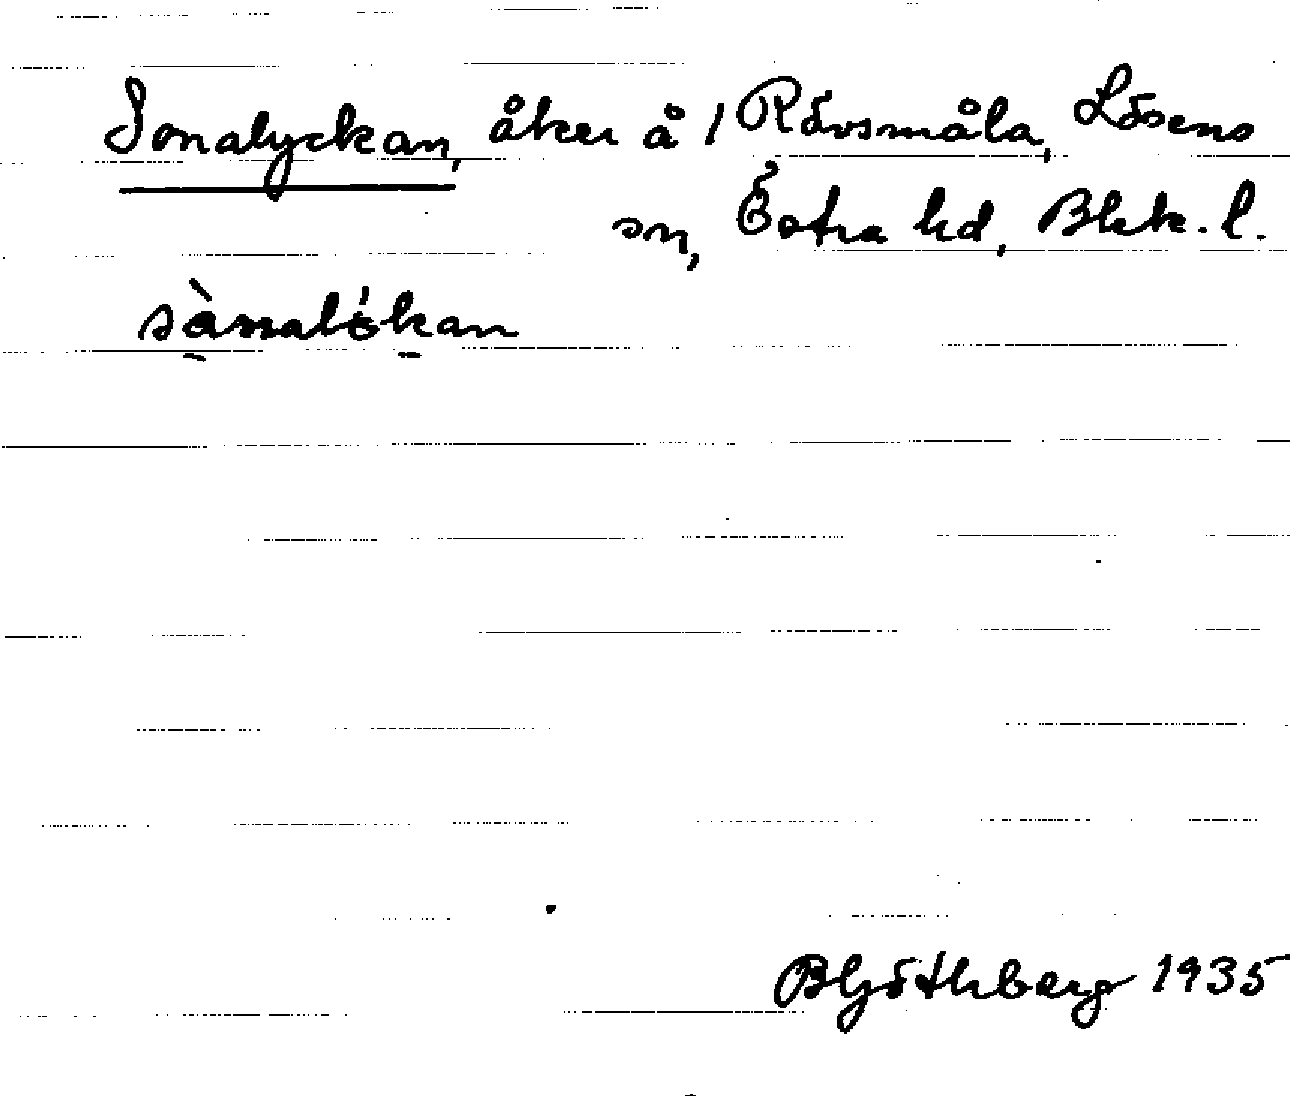 Sonalyckan, åker å 1 Rävsmåla, Lösens
sn, Östra hd, Blek. l.
sànnalỏkan
B Götlberg 1935